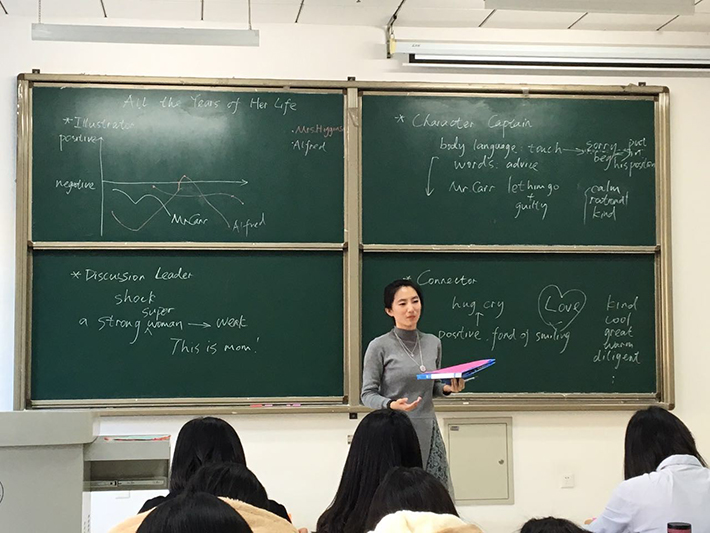 All the Years of Her Life
* Illustrator
positive
negative
• Mrs. Higgins
• Alfred
Mr. Carr
Alfred
* Character Captain
body language: touch → sorry
beg
put
in
his position
words. advice
Mr. Carr let him go
+
guilty
calm
rational
kind
* Discussion Leader
shock
super
a strong woman → weak
This is mom!
* Connector
hug cry
positive. fond of smiling
Love
kind
cool
great
warm
diligent